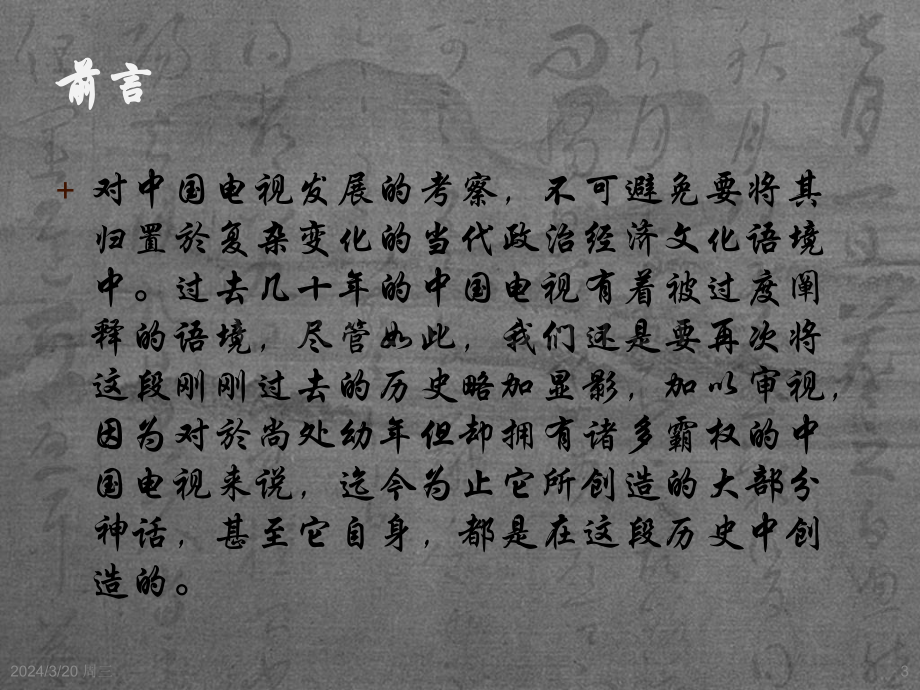 前言
+ 对中国电视发展的考察，不可避免要将其
归置於复杂变化的当代政治经济文化语境
中。过去几十年的中国电视有着被过度阐
释的语境，尽管如此，我们还是要再次将
这段刚刚过去的历史略加显影，加以审视，
因为对於尚处幼年但却拥有诸多霸权的中
国电视来说，迄今为止它所创造的大部分
神话，甚至它自身，都是在这段历史中创
造的。
2024/3/20 周三
3